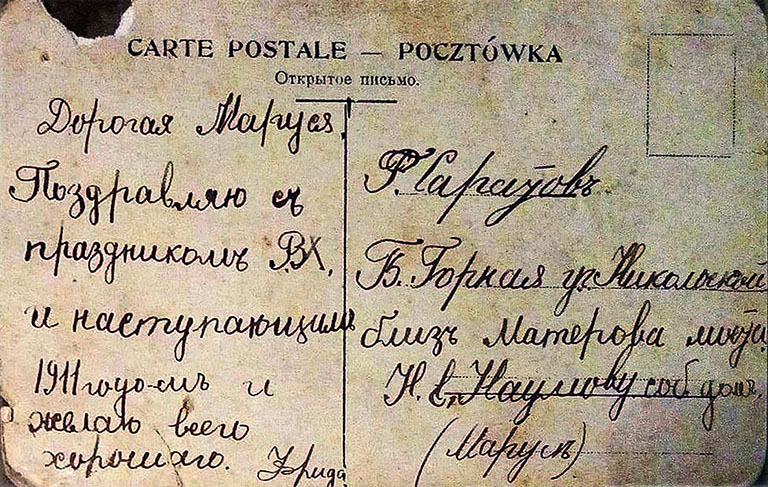 CARTE POSTALE — POCZTÓWKA
Открытое письмо.
Дорогая Маруся,
Поздравляю съ
праздникомъ Р.Х,
и наступающимъ
1911 годо-мъ и
желаю всего
хорошаго. Фрида
Г. Саратовъ
Б. Горная уг. Никольской
близъ Матерова
Н. Наумову соб домъ,
(Марусѣ)